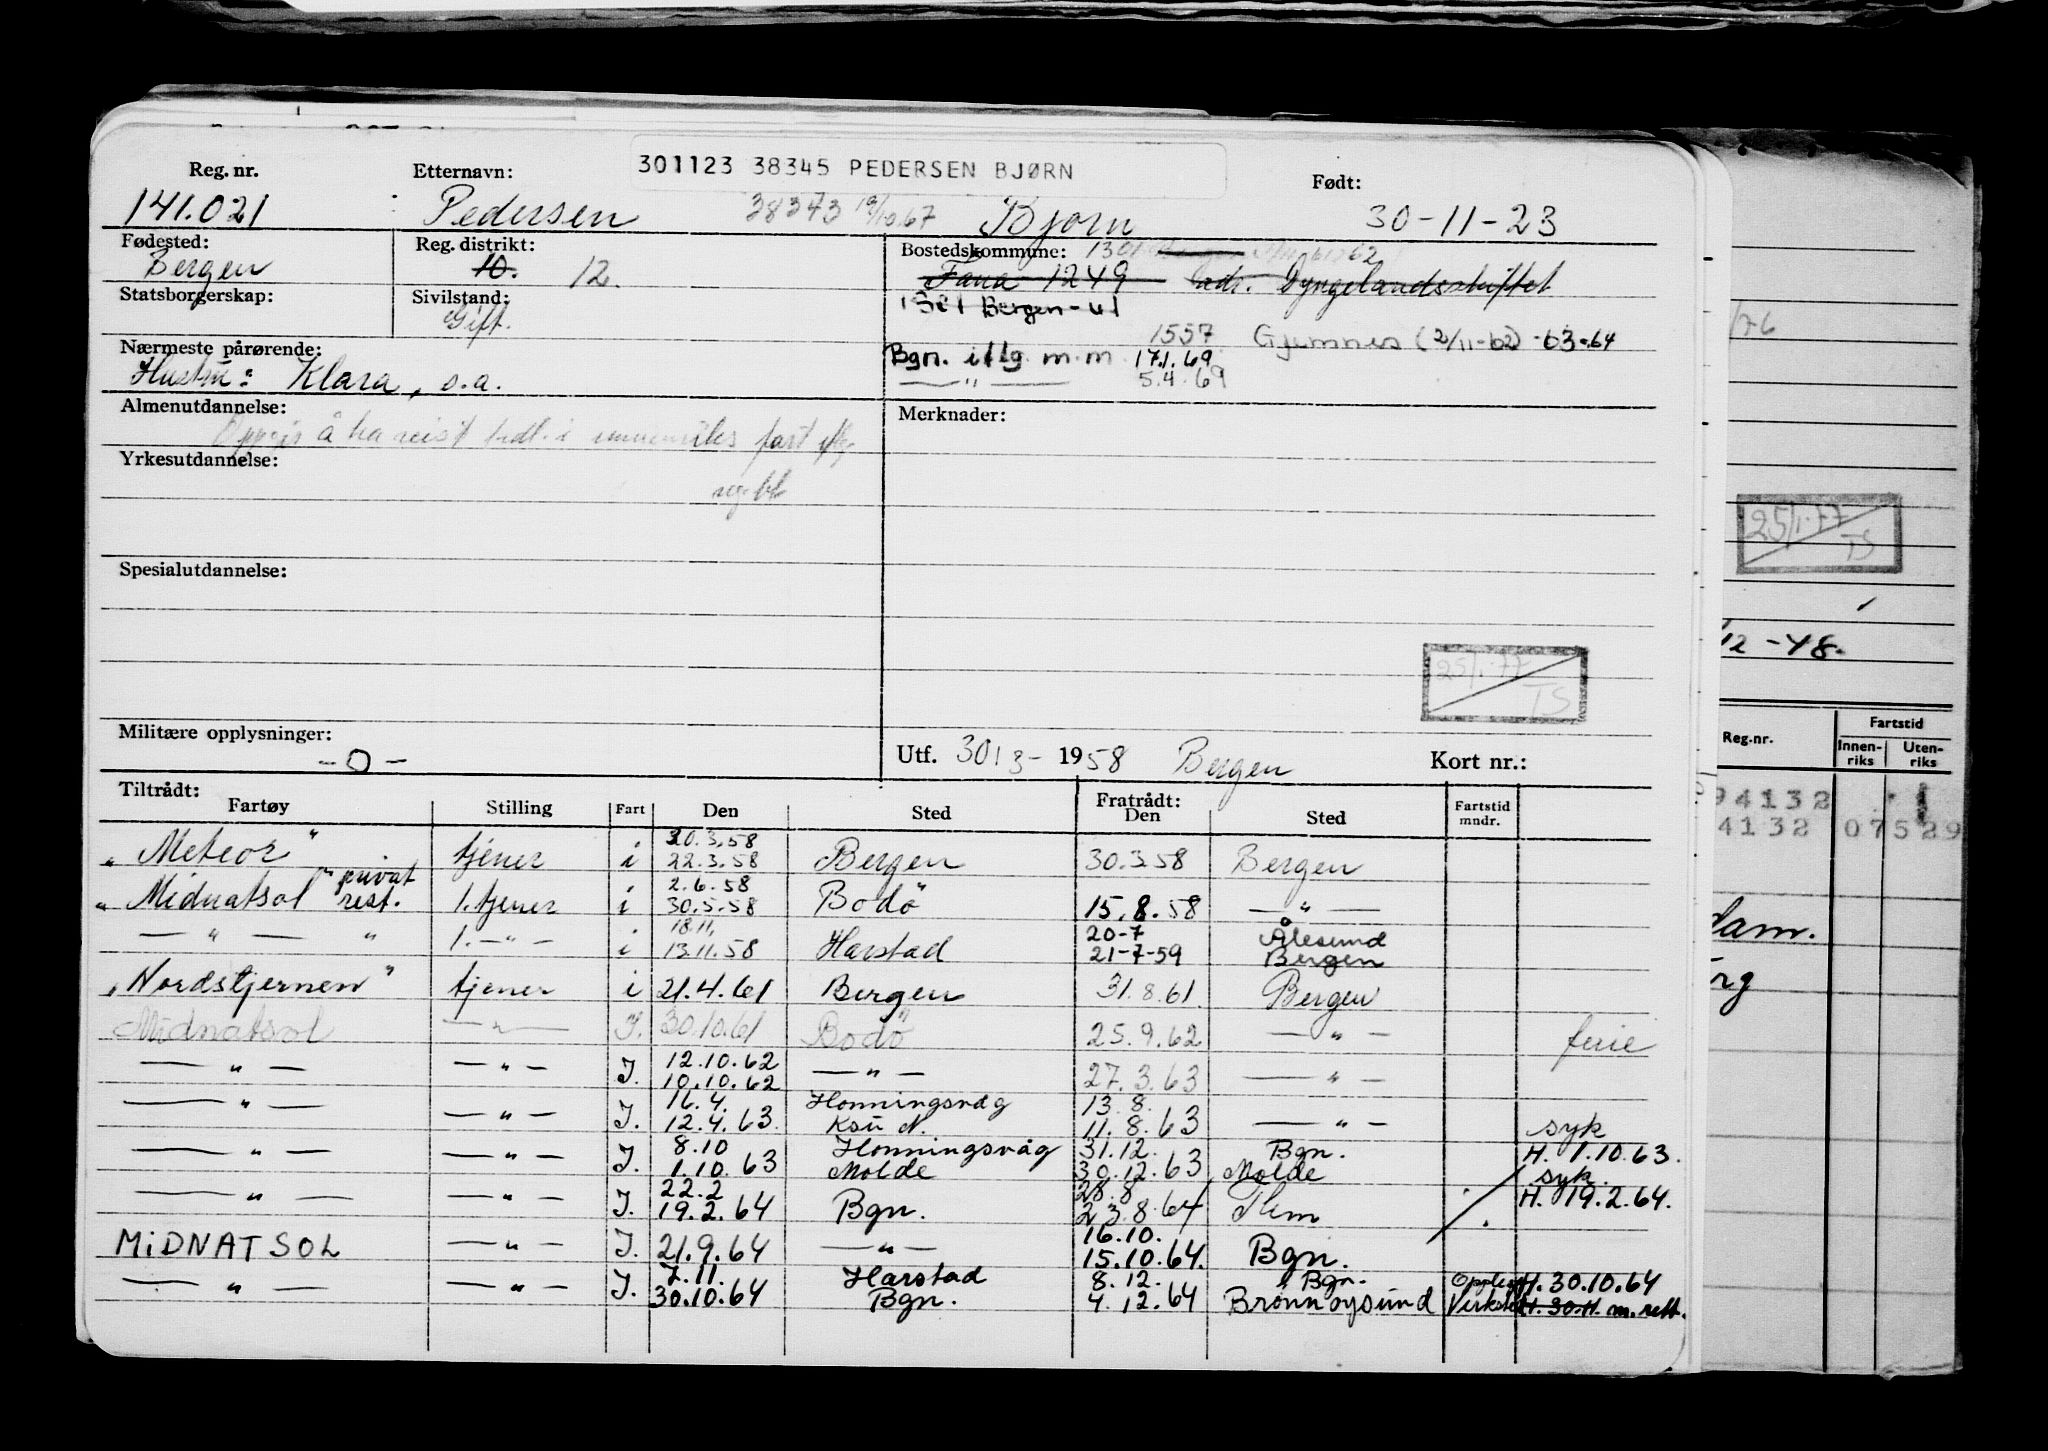 301123 38345 PEDERSEN BJØRN
Reg. nr. Etternavn: Født:
141.021 Pedersen 38373 19/10.67 Bjorn 30-11-23
Fødested: Reg. distrikt: Bostedskommune: 1301
Bergen 10. 12. Fana 1249 adr. Dyngelandsskiftet
Statsborgerskap: Sivilstand: 1301 Bergen-61
Gift.
1557 Gjemnes (2/11-62) -63-64
Nærmeste pårørende: Bgn. iflg m.m 17.1.69
Hustru: Klara, s.a. — " — 5.4.69
Almenutdannelse: Merknader:
Oppgis å ha reist tidl. i innenriks fart iflg.
Yrkesutdannelse:
Spesialutdannelse:
25/1-77
TS
Militære opplysninger:
-0- Utf. 30/3- 1958 Bergen Kort nr.:
Tiltrådt: Fratrådt:
Fartøy Stilling Fart Den Sted Den Sted Fartstid mndr.
30.3.58
"Meteor" tjener i 22.3.58 Bergen 30.3.58 Bergen
privat 2.6.58
"Midnatsol" rest. 1. tjener i 30.5.58 Bodö 15.8.58 — " —
18.11. 20-7 Ålesund
— " — " 1. — " — i 13.11.58 Harstad 21-7-59 Bergen
"Nordstjernen" tjener i 21.4.61 Bergen 31.8.61. Bergen
Midnatsol — " — I. 30.10.61 Bodö 25.9.62 — " — ferie
12.10.62
— " — — " — I. 10.10.62 — " — 27.3.63 — " —
16.4. Honningsvåg 13.8.
— " — — " — I. 12.4.63. Ksu N. 11.8.63 — " — syk
8.10 Honningsvåg 31.12. Bgn. H. 1.10.63.
— " — — " — I. 1.10.63 Molde 30.12.63 Molde syk.
22.2 28.8 H. 19.2.64.
— " — — " — I. 19.2.64 Bgn. 23.8.64
16.10.
MiDNATSOL — " — I. 21.9.64 — " — 15.10.64. Bgn.
7.11. Harstad 8.12. Bgn. H. 30.10.64
— " — — " — I. 30.10.64 Bgn. 4.12.64 Brönnöysund H. 30.11. m. rett.
/76
25/1-77
TS
/12 -48.
Fartstid
Reg.nr. Innen-riks Uten-riks
94132
4132 07529
dam.